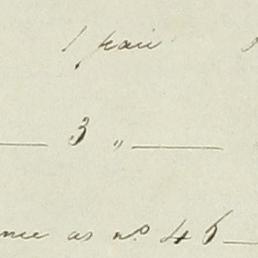 1 pair
— 3 „ —
as no. 46 —